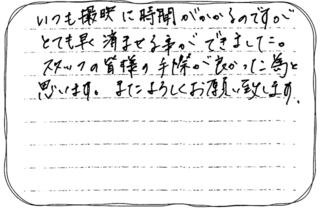 いつも撮映に時間がかかるのですが
とても早く済ませる事ができました。
スタッフの皆様の手際が良かった為と
思います。またよろしくお願い致します。